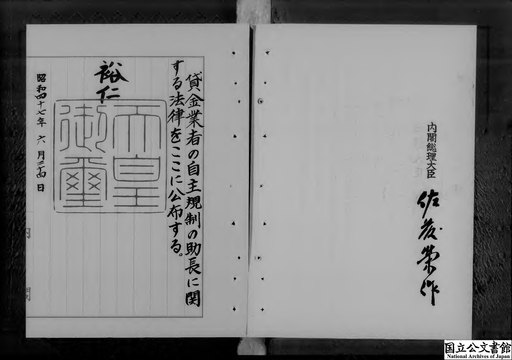 貸金業者の自主規制の助長に関
する法律をここに公布する。
裕仁
天皇
御璽
昭和四十七年六月二十四日
内閣総理大臣
佐藤榮作
国立公文書館
National Archives of Japan